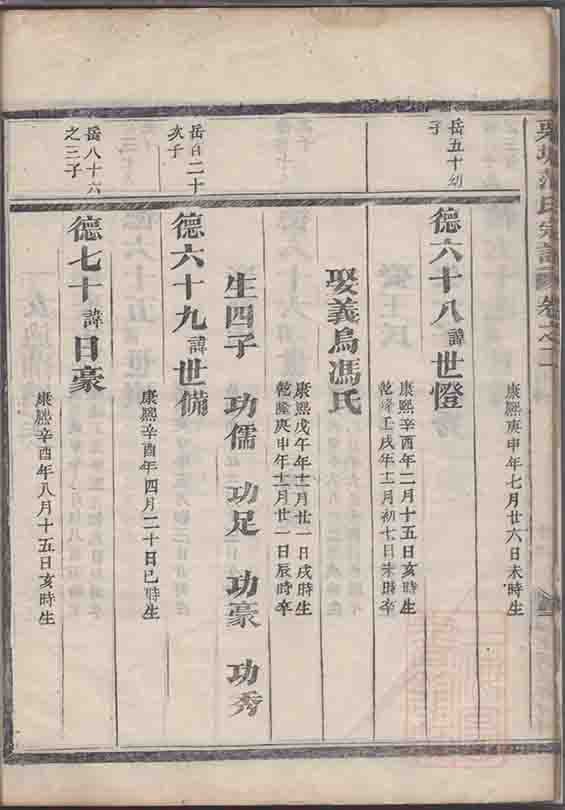 氏宗譜 卷之二
康熙庚申年七月廿六日未時生
岳五十幼子
德六十八諱世燈
康熙辛酉年二月十五日亥時生
乾隆壬戌年十二月初七日未時卒
娶義烏馮氏
康熙戊午年十二月廿一日戌時生
乾隆庚申年十二月廿一日辰時卒
生四子 功儒 功足 功豪 功秀
岳百二十次子
德六十九諱世備
康熙辛酉年四月二十日巳時生
岳八十六之三子
德七十諱日豪
康熙辛酉年八月十五日亥時生